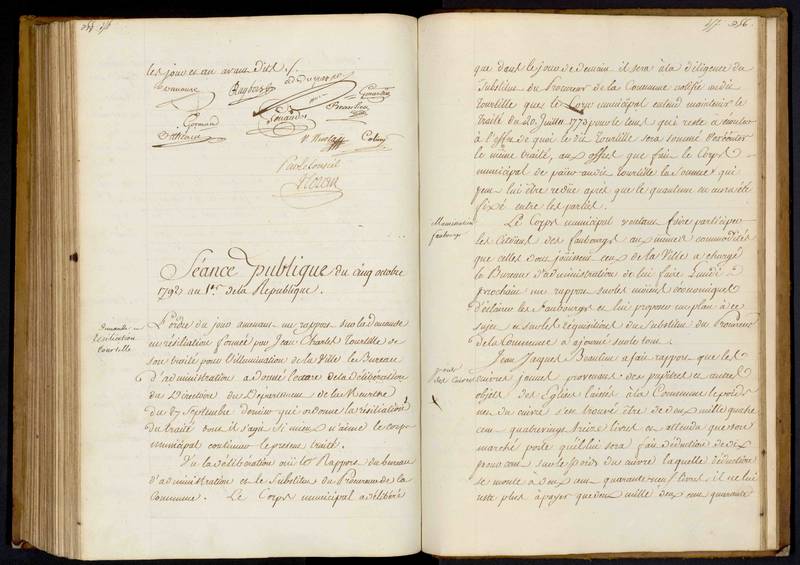 les jour et an avant dits /.
Par le Conseil
Séance publique du cinq octobre
1792 au 1er de la République.
Demande en
résiliation
tourtille
L'ordre du jour amenant un rapport sur la demande
en résiliation formée par Jean Charles Tourtille de
son traité pour l'illumination de la Ville le Bureau
d'administration a donné lecture de la Délibération
du Directoire du Département de la Meurthe
du 27 Septembre dernier qui ordonne la résiliation
du traité dont il s'agit si mieux n'aime le corps
municipal continuer le présent traité.
Vu la délibération ouï le Rapport du bureau
d'administration et le Substitut du Procureur de la
Commune. Le Corps municipal a délibéré
256.
que dans le jour de demain il sera à la diligence du
Substitut du Procureur de la Commune notifié audit
Tourtille que le Corps municipal entend maintenir le
traité du 20 Juillet 1773 pour le tems qui reste à écouler
à l'effet de quoi le dit Tourtille sera sommé d'exécuter
le même traité, aux offres que fait le Corps
municipal de payer audit Tourtille la somme qui
peut lui être redûe après que le quantum en aura été
fixé entre les parties.
Illumination
faubourgs
Le Corps municipal voulant faire participer
les Citoyens des faubourgs aux mêmes commodités
que celles dont jouissent ceux de la Ville a chargé
le Bureau d'administration de lui faire Lundi
prochain un rapport sur les moiens économiques
d'éclairer les Faubourgs et lui proposer un plan à ce
sujet et sur les réquisitions du Substitut du Procureur
de la Commune a ajourné sur le tout.
poids
des Cuivres
Jean Jaques Beaulieu a fait rapport que les
cuivres jaunes provenant des pupitres et autres
objets des Eglises laissés à la Commune le poids
net du cuivre s'est trouvé être de deux mille quatre
cent quatrevingt treize livres et attendu que son
marché porte qu'il lui sera fait déduction de dix
pour cent sur le poids du cuivre laquelle déduction
se monte à deux cent quarante neuf livres, il ne lui
reste plus à payer que deux mille deux cent quarante